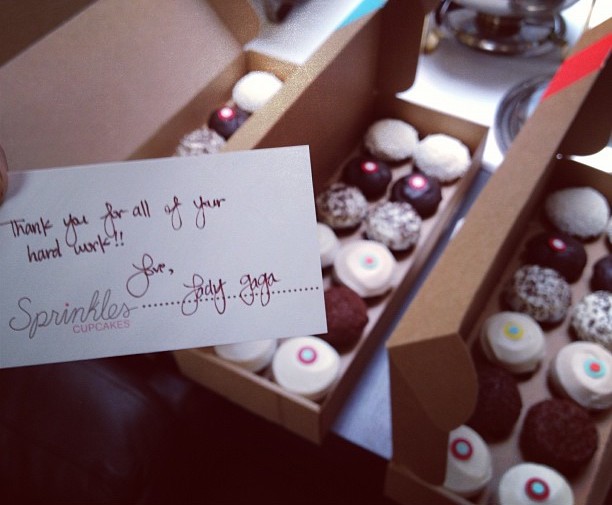 Thank you for all of your
hard work!!
Love,
Lady Gaga
Sprinkles
CUPCAKES